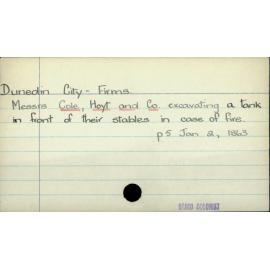 Dunedin City - Firms
Messrs Cole, Hoyt and Co. excavating a tank
in front of their stables in case of fire.
p5 Jan 2, 1863